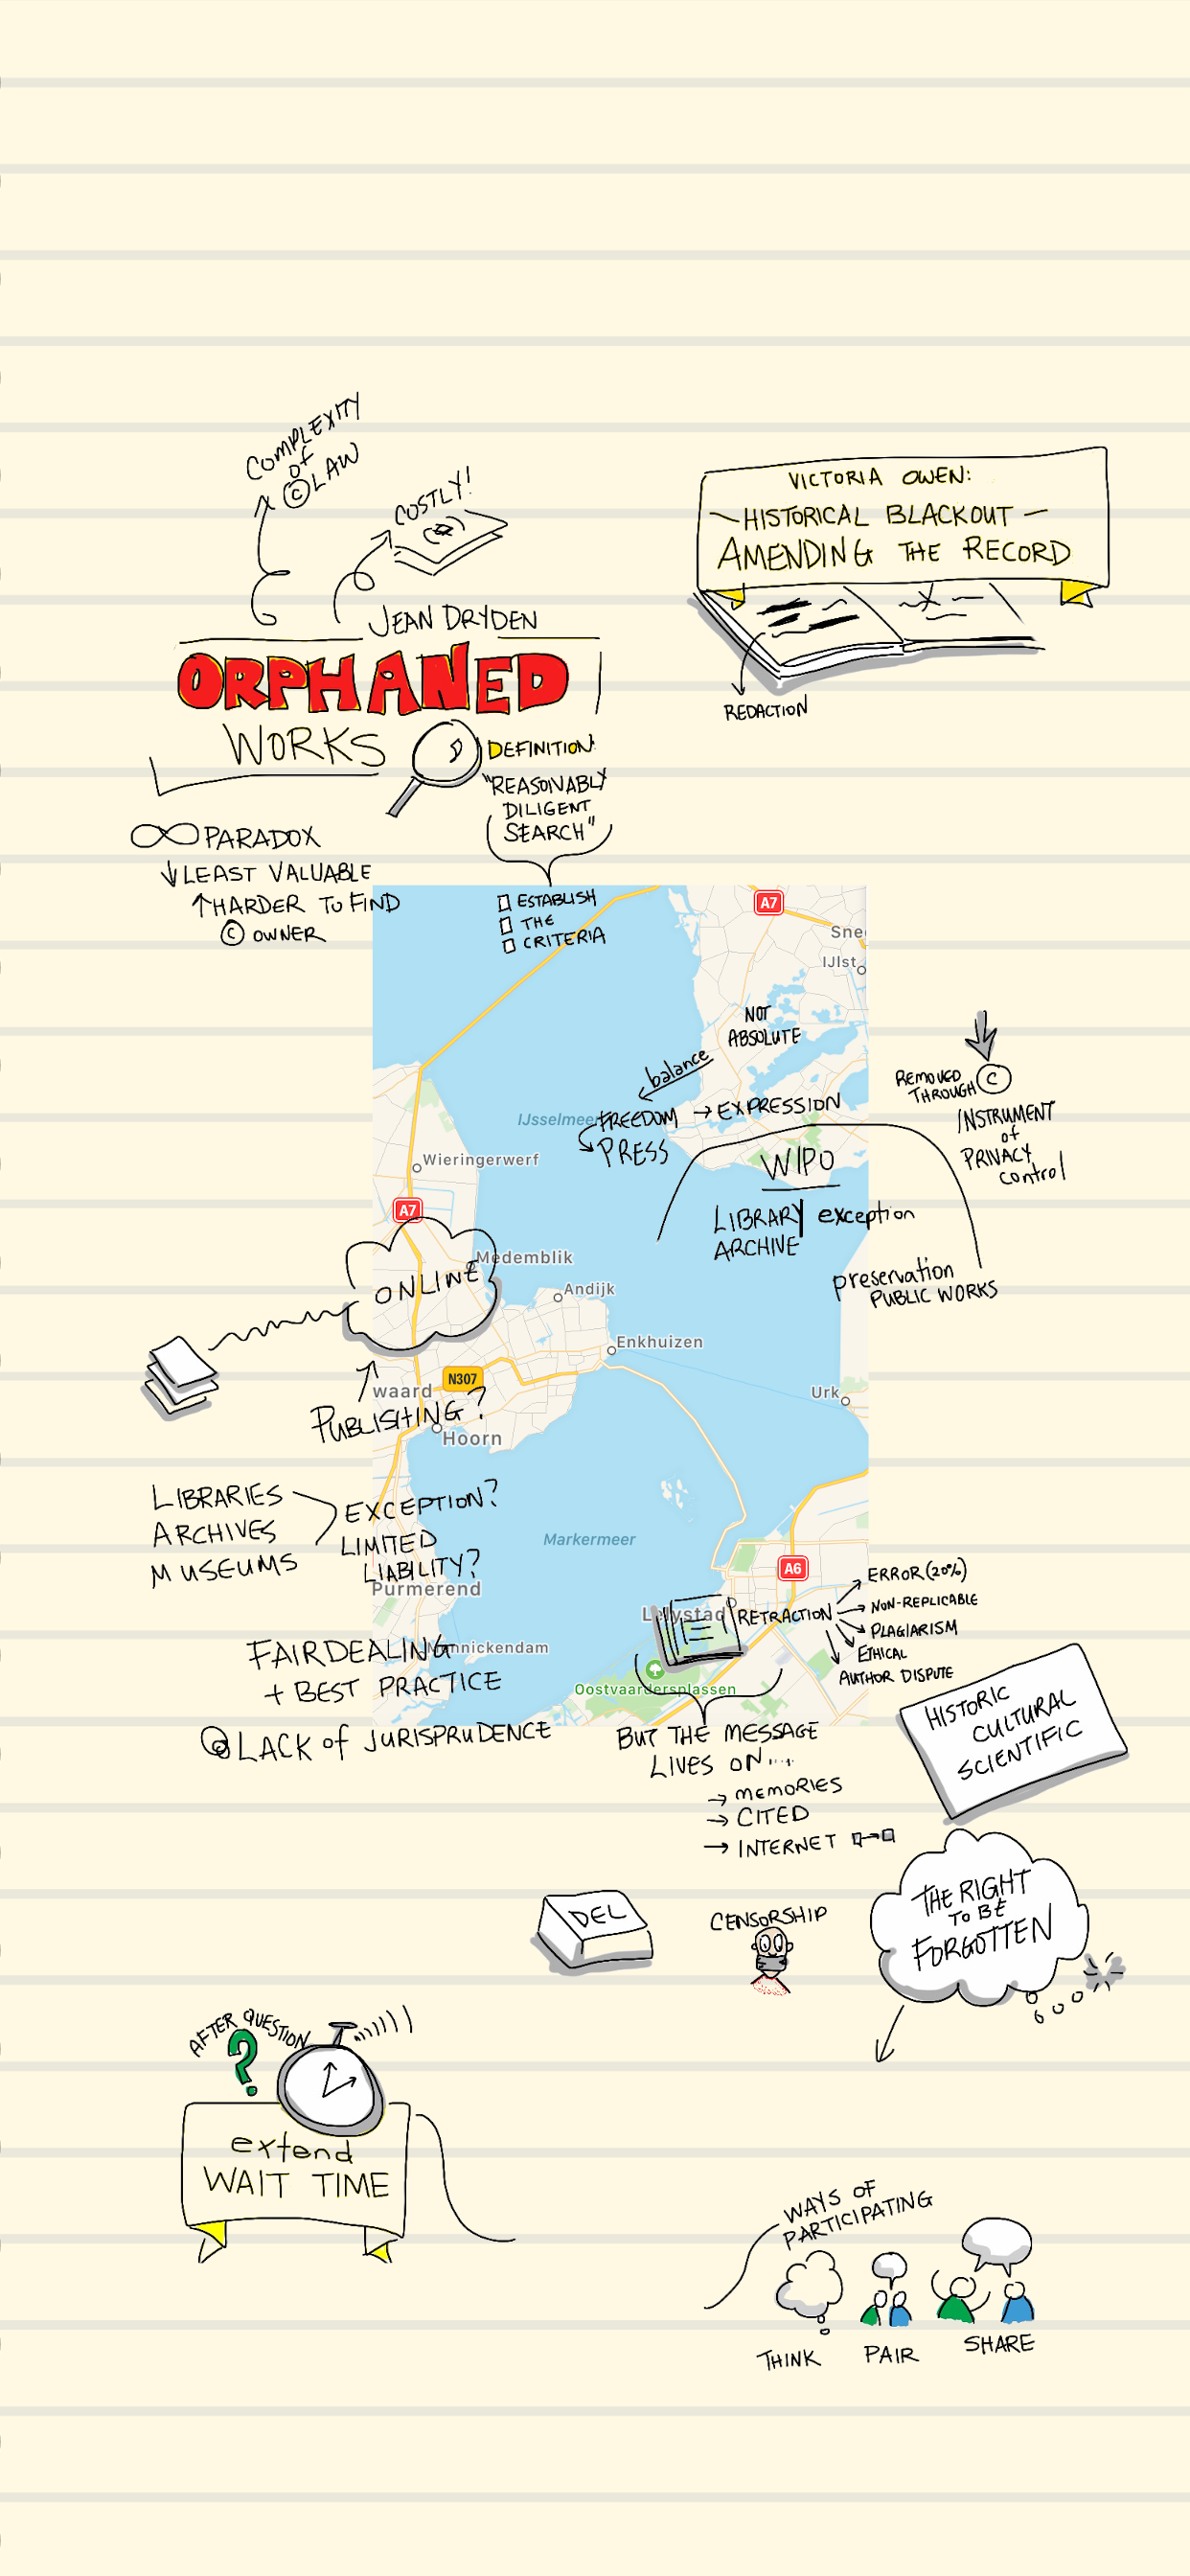 COMPLEXITY
of
© LAW
COSTLY!
JEAN DRYDEN
ORPHANED
WORKS
DEFINITION:
"REASONABLY
DILIGENT
SEARCH"
ESTABLISH
THE
CRITERIA
∞ PARADOX
↓ LEAST VALUABLE
↑ HARDER TO FIND
© OWNER
VICTORIA OWEN:
- HISTORICAL BLACKOUT -
AMENDING THE RECORD
REDACTION
A7
Sne
IJlst
NOT
ABSOLUTE
balance
FREEDOM → EXPRESSION
PRESS
IJsselmee
REMOVED
THROUGH ©
INSTRUMENT
of
PRIVACY
control
WIPO
LIBRARY exception
ARCHIVE
preservation
PUBLIC WORKS
Wieringerwerf
A7
Medemblik
ONLINE
Andijk
Enkhuizen
N307
waard
PUBLISHING?
Hoorn
Urk
LIBRARIES
ARCHIVES
MUSEUMS
EXCEPTION?
LIMITED
LIABILITY?
Markermeer
Purmerend
A6
Lelystad
RETRACTION
ERROR (20%)
NON-REPLICABLE
PLAGIARISM
ETHICAL
AUTHOR DISPUTE
Oostvaardersplassen
FAIR DEALING
nnickendam
+ BEST PRACTICE
LACK of JURISPRUDENCE
BUT THE MESSAGE
LIVES ON....
→ MEMORIES
→ CITED
→ INTERNET
HISTORIC
CULTURAL
SCIENTIFIC
DEL
CENSORSHIP
THE RIGHT
TO BE
FORGOTTEN
AFTER QUESTION
?
extend
WAIT TIME
WAYS OF
PARTICIPATING
THINK
PAIR
SHARE